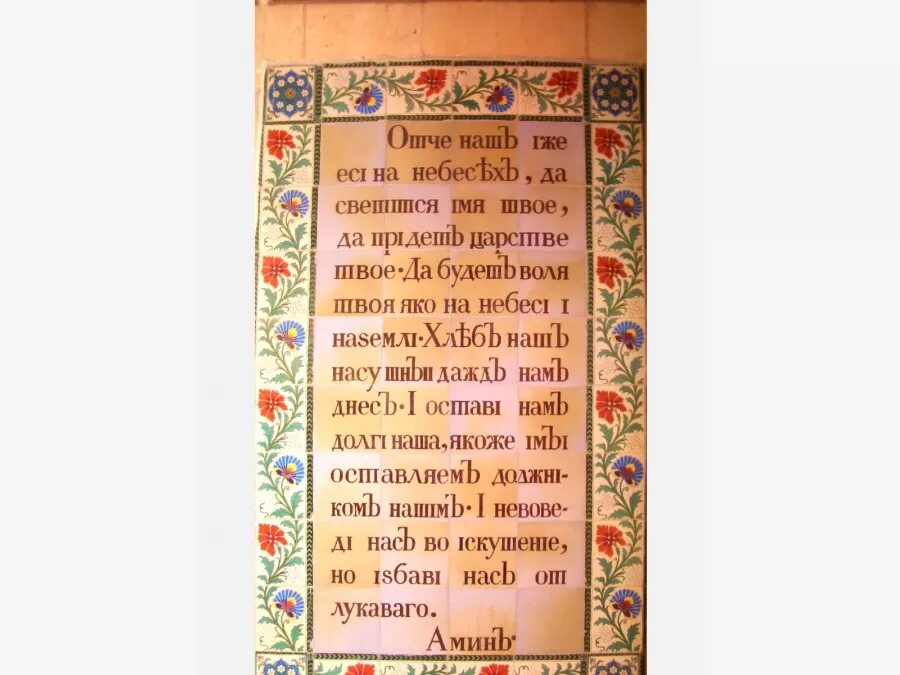 Отче нашъ іже
есі на небесѣхъ, да
светітся імя твое,
да прідетъ царствe
твое·Да будетъ воля
твоя яко на небесі і
наѕемлі·Хлѣбъ нашъ
насушнъіі даждъ намъ
днесъ·І оставі намъ
долгі наша, якоже імъі
оставляемъ должні-
комъ нашімъ·І невове-
ді насъ во іскушеніе,
но іѕбаві насъ от
лукаваго.
Аминъ·